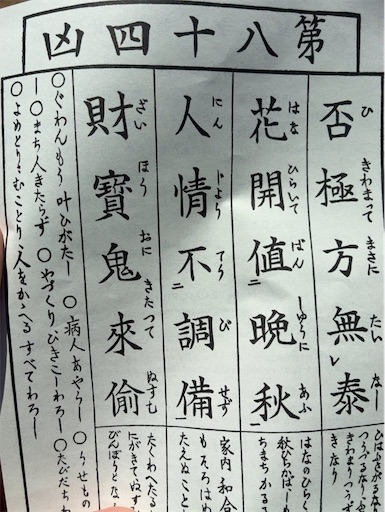 第八十四凶
否極方無泰
ひ きわまって まさに たい なし
花開値晩秋
はな ひらいて ばん しゆうに あふ
人情不調備
にん じよう てう び せず
財寶鬼來偷
ざい ほう おに きたつて ぬすむ
きなり
はなのひらく
秋ひらかばしも
家内和合
もそろはぬ
たえぬこと
たくわへたる
にがきてぬす
びんぼうとな
○ぐわんもう叶ひがたし ○病人あやうし ○うせもの
し ○まち人きたらず ○やづくりひきこしわろし ○たびだちわ
○よめとりむことり人をかゝへるすべてわろし